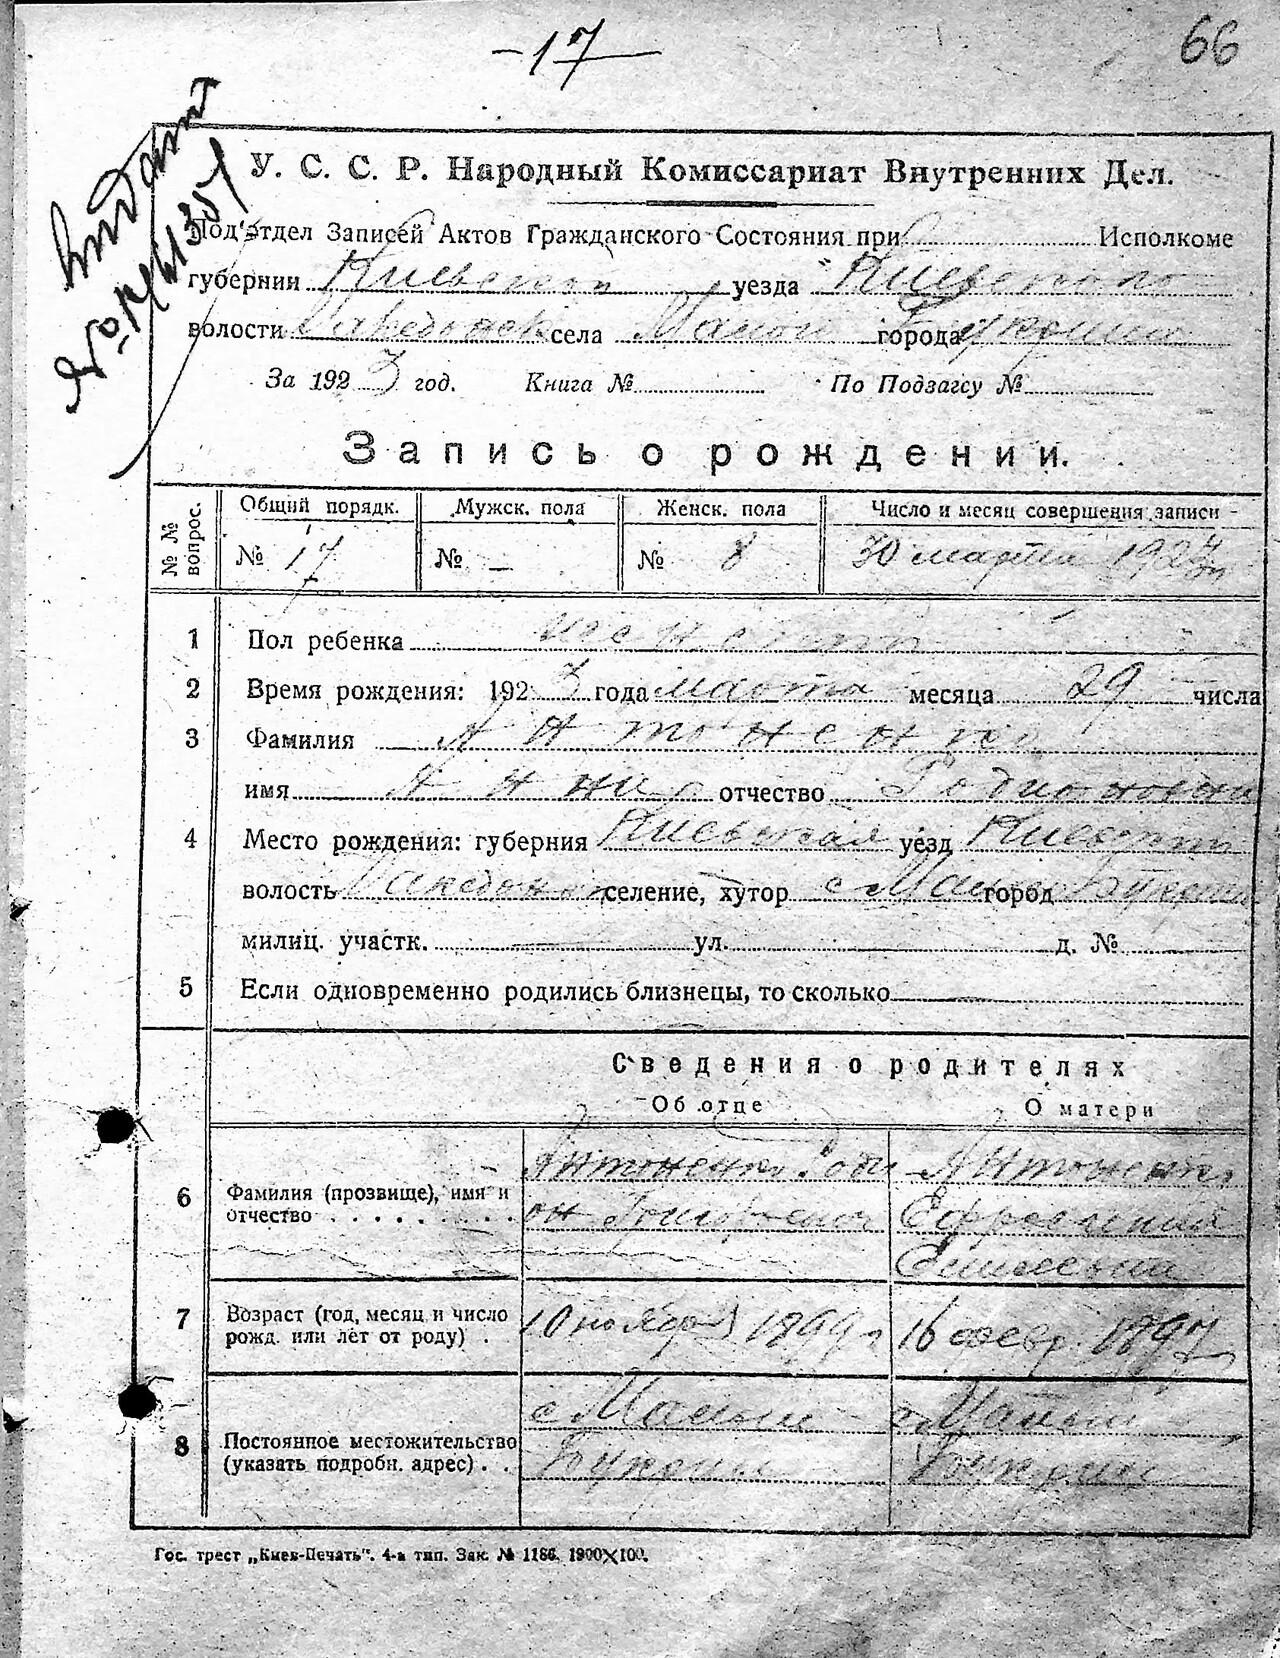 -17-
66
У. С. С. Р. Народный Комиссариат Внутренних Дел.
Под'отдел Записей Актов Гражданского Состояния при Исполкоме
губернии Киевской уезда Киевского
волости Македонск села Малой города Букрин
За 1923 год. Книга № По Подзагсу №
Запись о рождении.
№ № вопрос.
Общий порядк. Мужск. пола Женск. пола Число и месяц совершения записи
№ 17 № – № 8 30 марта 192
1 Пол ребенка женский
2 Время рождения: 1923 года марта месяца 29 числа
3 Фамилия Антоненко
имя Анна отчество Родионовна
4 Место рождения: губерния Киевская уезд Киевский
волость селение, хутор с город
милиц. участк. ул. д. №
5 Если одновременно родились близнецы, то сколько
Сведения о родителях
Об отце О матери
6 Фамилия (прозвище), имя и отчество
Антоненко Роди
он Григорьевич
Антоненко
Ефросиния
7 Возраст (год, месяц и число рожд. или лет от роду) .
10 ноября 1899 г
16 февр. 1897
8 Постоянное местожительство (указать подробн. адрес) . .
с Малый
Букрин
с Малый
Букрин
Гос. трест „Киев-Печать“. 4-я тип. Зак. № 1186. 1900×100.